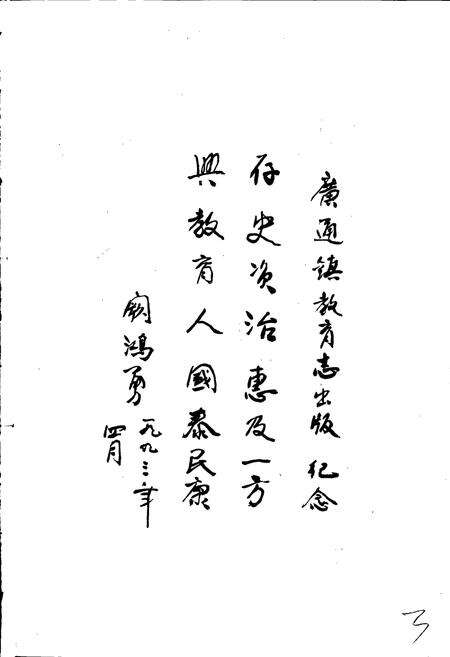 廣通鎮教育志出版紀念
存史资治惠及一方
興教育人國泰民康
鴻勇 一九九三年
四月